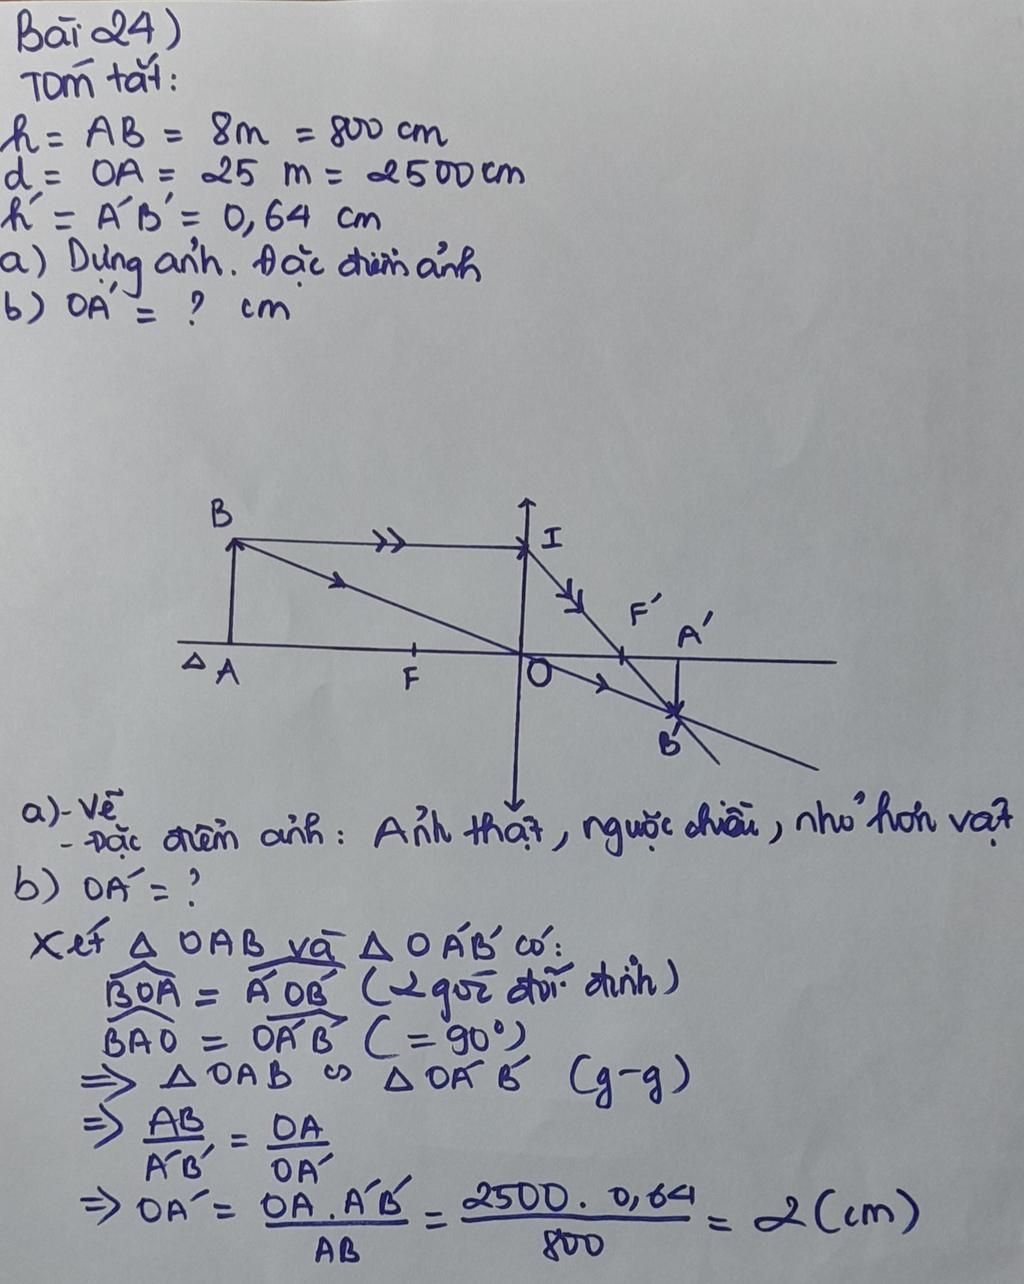 Bài 24)
Tóm tắt:
h = AB = 8m = 800 cm
d = OA = 25 m = 2500 cm
h' = A'B' = 0,64 cm
a) Dựng ảnh. Đặc điểm ảnh
b) OA' = ? cm
B
I
F'
A'
Δ A
F
O
B'
a) - Vẽ
- Đặc điểm ảnh: Ảnh thật, ngược chiều, nhỏ hơn vật
b) OA' = ?
Xét Δ OAB và Δ OA'B' có:
BOA = A'OB' (2 góc đối đỉnh)
BAO = OA'B' (= 90°)
=> Δ OAB ∽ Δ OA'B' (g-g)
=> AB/A'B' = OA/OA'
=> OA' = OA.A'B'/AB = 2500.0,64/800 = 2 (cm)